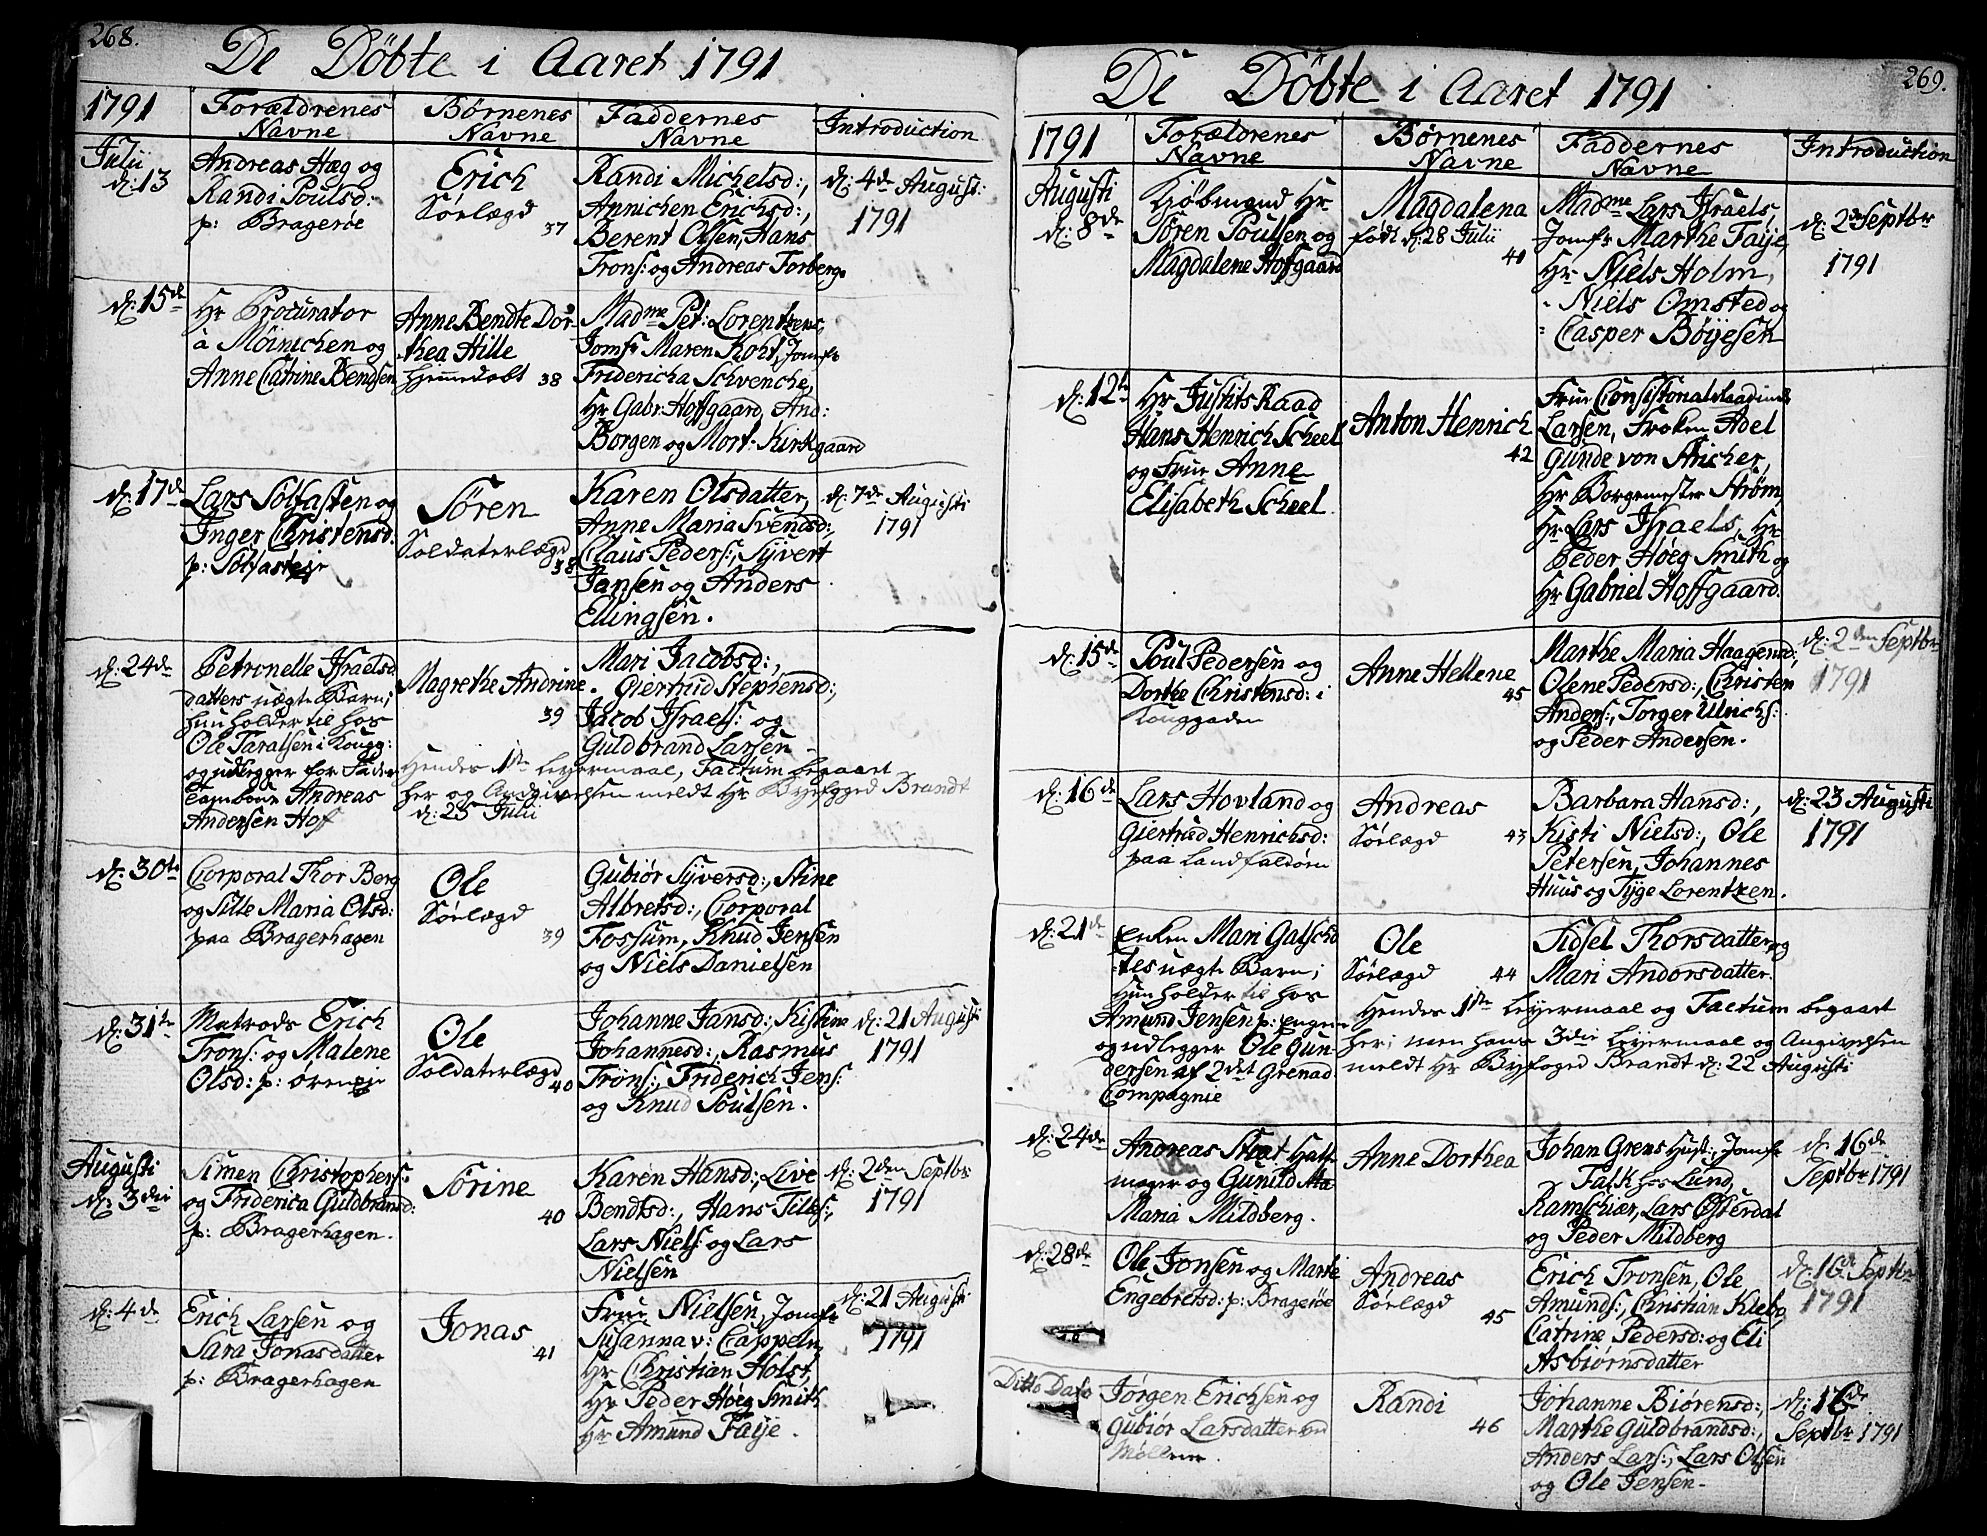 268.
De Döbte i Aaret 1791
1791
Forældrenes Navne
Börnenes Navne
Faddernes Navne
Introduction
Julii
d: 13
Andreas Hæg og
Randi Poulsd:
p: Brageröe
Erich
Sörlægd
37
Randi Michelsd:,
Annichen Erichsd:,
Berent Olsen, Hans
Trons: og Andreas Forberg.
d: 4de Augusti:
1791
d: 15de
Hr Procurator
à Möinichen og
Anne Catrine Bendsen
Anne Bendte Dor
thea Hille
Hjemedöbt 38
Madme Pet: Lorentzens,
Jomfr Maren Kort, Jomfr
Fridericha Schvenche,
Hr Gabr: Hoffgaard, And:
Borgen og Mort: Kirkgaard
d: 17de
Lars Solfasten og
Inger Christensd:
p: Solfasteje
Sören
Soldaterlægd
38
Karen Olsdatter,
Anne Maria Svendsd:,
Claus Peders:, Syvert
Jansen og Anders
Ellingsen.
d: 7de Augusti
1791
d: 24de
Petronelle Israelsd
datters uægte Barn;
hun holder til hos
Ole Taralsen i Kongg:
og udlegger for Fader
Tambour Andreas
Andersen Hof
Magrethe Andrine
39
Mari Jacobsd:,
Giertrud Stephensd:,
Jacob Israels: og
Guldbrand Larsen
Hendes 1te Leyermaal, Factum begaaet
her og Andgivelsen meldt Hr Byefoged Brandt
d: 25 Julii
d: 30te
Corporal Thor Berg
og Sille Maria Olsd:
paa Bragerhagen
Ole
Sörlægd
39
Gubiör Syversd:, Stine
Albretsd:, Corporal
Fossum, Knud Jensen
og Niels Danielsen
d: 31te
Matrods Erich
Trons: og Malene
Olsd: p: öreneje
Ole
Soldaterlægd
40
Johanne Jansd:, Kistine
Johannesd:, Rasmus
Tröns:, Friderich Jens:
og Knud Poulsen.
d: 21 Augusti
1791
Augusti
d: 3die
Simen Christophers:
og Friderica Guldbransd:
p: Bragerhagen.
Sörine
40
Karen Hansd:, Live
Bendtsd:, Hans Tilles:,
Lars Niels: og Lars
Nielsen
d: 2den Septbr
1791
d: 4de
Erich Larsen og
Sara Jonasdatter
p: Bragerhagen
Jonas
41
Frue Nielsen, Jomfr
Susanna v: Cappeln,
Hr Christian Holst,
Hr Peder Höeg Smith
Hr Amund Faije.
d: 21 Augusti
1791
269.
De Döbte i Aaret 1791
1791
Forældrenes Navne
Börnenes Navne
Faddernes Navne
Introduction
Augusti
d: 8de
Kjöbmand Hr
Sören Poulsen og
Magdalene Hoffgaard
Magdalena
födt d: 28 Julii
41
Madme Lars Israels,
Jomfr Marthe Faije,
Hr Niels Holm,
- Niels Omsted og
- Casper Böijesen
d: 2de Septbr
1791
d: 12te
Hr Justits Raad
Hans Henrich Scheel
og Frue Anne
Elisabeth Scheel
Anton Henrich
42
Frue Consistorialraadinde
Larsen, Fröken Adel
Gunde von Stricher,
Hr Borgemester Ström,
Hr Lars Israels, Hr
Peder Höeg Smith og
Hr Gabriel Hoffgaard.
d: 15de
Poul Pedersen og
Dorthe Christensd: i
Konggaden
Anne Hellene
45
Marthe Maria Haagensd:,
Olene Pedersd:, Christen
Anders:, Torger Ulrichs:
og Peder Andersen.
d: 2den Septbr
1791
d: 16de
Lars Hovland og
Giertrud Henrichsd:
paa Landfaldörn
Andreas
Sörlægd
43
Barbara Hansd:,
Kisti Nielsd:, Ole
Petersen, Johannes
Huus og Tyge Lorentzen.
d: 23 Augusti
1791
d: 21de
Enken Mari Galschöt
tes uægte Barn;
Hun holder til hos
Amund Jensen p: Engene
og udlegger Ole Gun-
dersen af 2det Grenad
Compagnie
Ole
Sörlægd
44
Sidsel Thorsdatter og
Mari Andorsdatter.
Hendes 1te Leyermaal og Factum begaaet
her; men hans 3die Leyermaal og Angivelsen
meldt Hr Byefoged Brandt d: 22 Augusti
d: 24de
Andreas Stræt Hatt-
mager og Gunild Ma
Maria Mildberg.
Anne Dorthea
Johan Grens Hust:, Jomfr
Falk hos Lund,
Ramschiær, Lars Österdal
og Peder Mildberg
d: 16de
Septbr 1791
d: 28de
Ole Jonsen og Marte
Engebretsd: p: Brageröe
Andreas
Sörlægd
45
Erich Tronsen, Ole
Amunds:, Christian Klebo,
Catrine Pedersd: og Eli
Asbiörnsdatter
d: 16de Septbr
1791
Ditto Dato
Jörgen Erichsen og
Gubiör Larsdatter ved
Möllene.
Randi
46
Johanne Biörensd:,
Marthe Guldbrandsd:,
Anders Lars:, Lars Olsen
og Ole Jensen.
d: 16de
Septbr 1791